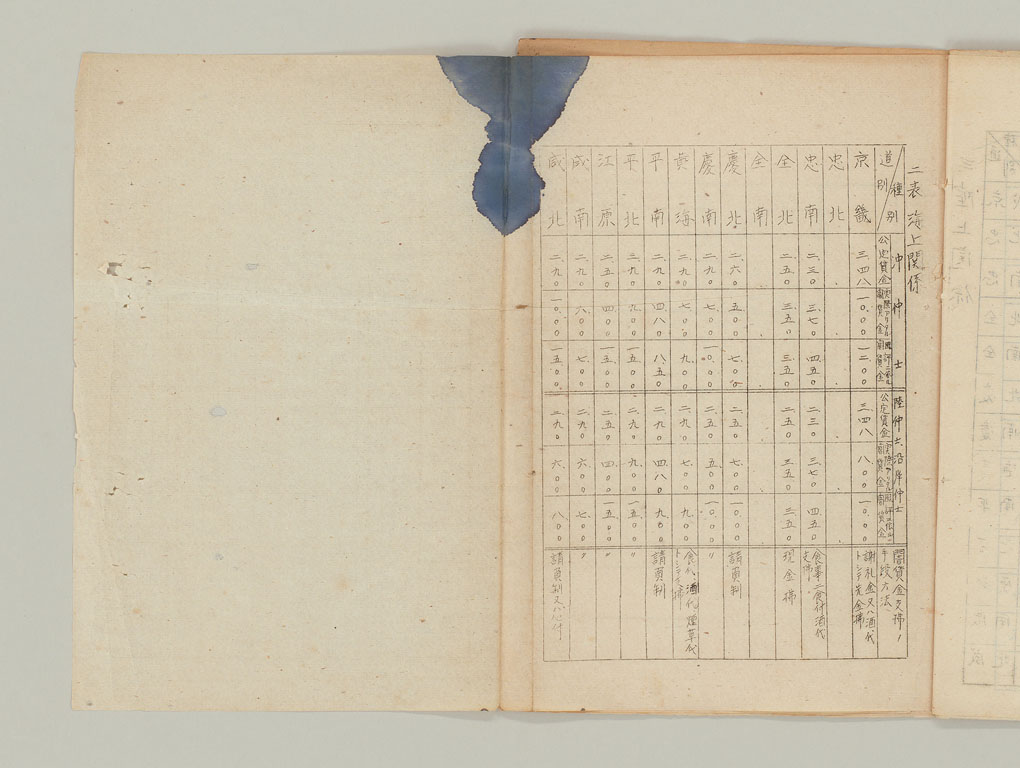 二表 海上関係
種別
道別
沖仲士
陸仲士、沿岸仲士
公定賃金
闇賃金
闇賃金
公定賃金
闇賃金
闇賃金
闇賃金支拂ノ手段方法
京畿 三.四八 一〇.〇〇 一二.〇〇 三.四八 八.〇〇 一〇.〇〇 謝礼金又ハ酒代トシテ先金拂
忠北
忠南 二.三〇 三.七〇 四.五〇 二.三〇 三.七〇 四.五〇 食事二食付酒代支拂
全北 二.五〇 三.五〇 三.五〇 二.五〇 三.五〇 三.五〇 現金拂
全南
慶北 二.六〇 五.〇〇 七.〇〇 二.五〇 七.〇〇 一〇.〇〇 請負制
慶南 二.九〇 七.〇〇 一〇.〇〇 二.五〇 五.〇〇 一〇.〇〇 〃
黄海 二.九〇 七.〇〇 九.〇〇 二.九〇 七.〇〇 九.〇〇 食代、酒代、煙草代トシテ支拂
平南 二.九〇 四.八〇 八.五〇 二.九〇 四.八〇 九.〇〇 請負制
平北 三.九〇 九.〇〇 一五.〇〇 二.九〇 九.〇〇 一五.〇〇 〃
江原 二.五〇 四.〇〇 一五.〇〇 二.九〇 四.〇〇 一五.〇〇 〃
咸南 二.九〇 六.〇〇 七.〇〇 二.九〇 六.〇〇 七.〇〇 〃
咸北 二.九〇 一〇.〇〇 一五.〇〇 二.九〇 六.〇〇 八.〇〇 請負制又ハ心付